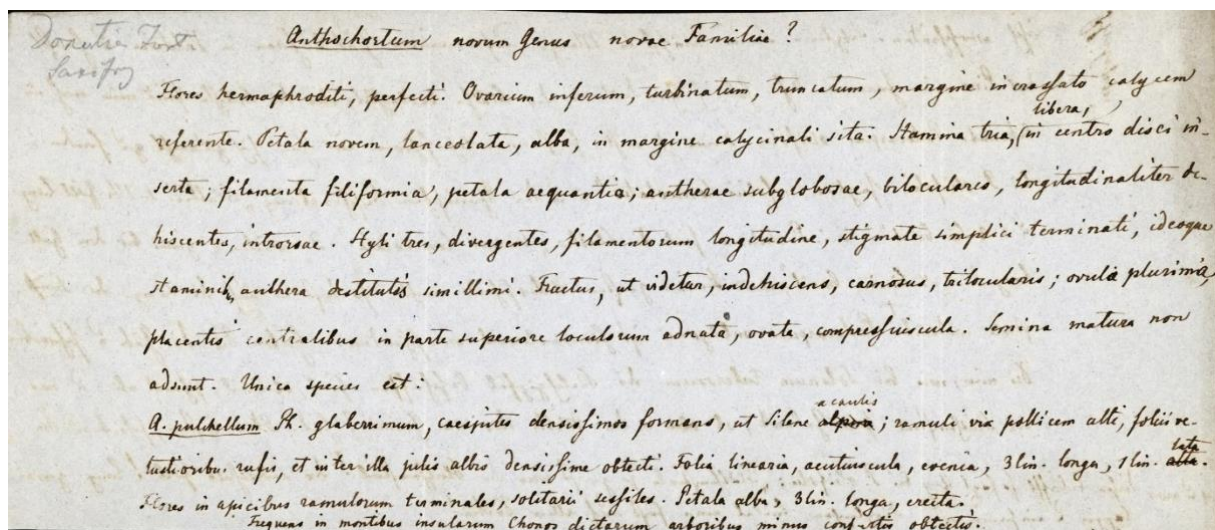 Donatia Forst
Saxifrag
Anthochortum novum Genus novae Familiae?
Flores hermaphroditi, perfecti. Ovarium inferum, turbinatum, truncatum, margine incrassato calycem
referente. Petala novem, lanceolata, alba, in margine calycinali sita. Stamina tria, libera, in centro disci in-
serta; filamenta filiformia, petala aequantia; antherae subglobosae, biloculares, longitudinaliter de-
hiscentes, introrsae. Styli tres, divergentes, filamentorum longitudine, stigmate simplici terminati, ideoque
staminib. anthera destitutis simillimi. Fructus, ut videtur, indehiscens, carnosus, trilocularis; ovula plurima,
placentis centralibus in parte superiore loculorum adnata, ovata, compressiuscula. Semina matura non
adsunt. Unica species est:
A. pulchellum Ph. glaberrimum, caespites densissimos formans, ut Silene acaulis; ramuli vix pollicem alti, foliis ve-
tustioribus rufis, et inter illa pilis albis densissime obtecti. Folia linearia, acutiuscula, evenia, 3 lin. longa, 1 lin. lata.
Flores in apicibus ramulorum terminales, solitarii sessiles. Petala alba, 3 lin. longa, erecta.
Frequens in montibus insularum Chonos dictarum arboribus minus confertis obtectis.